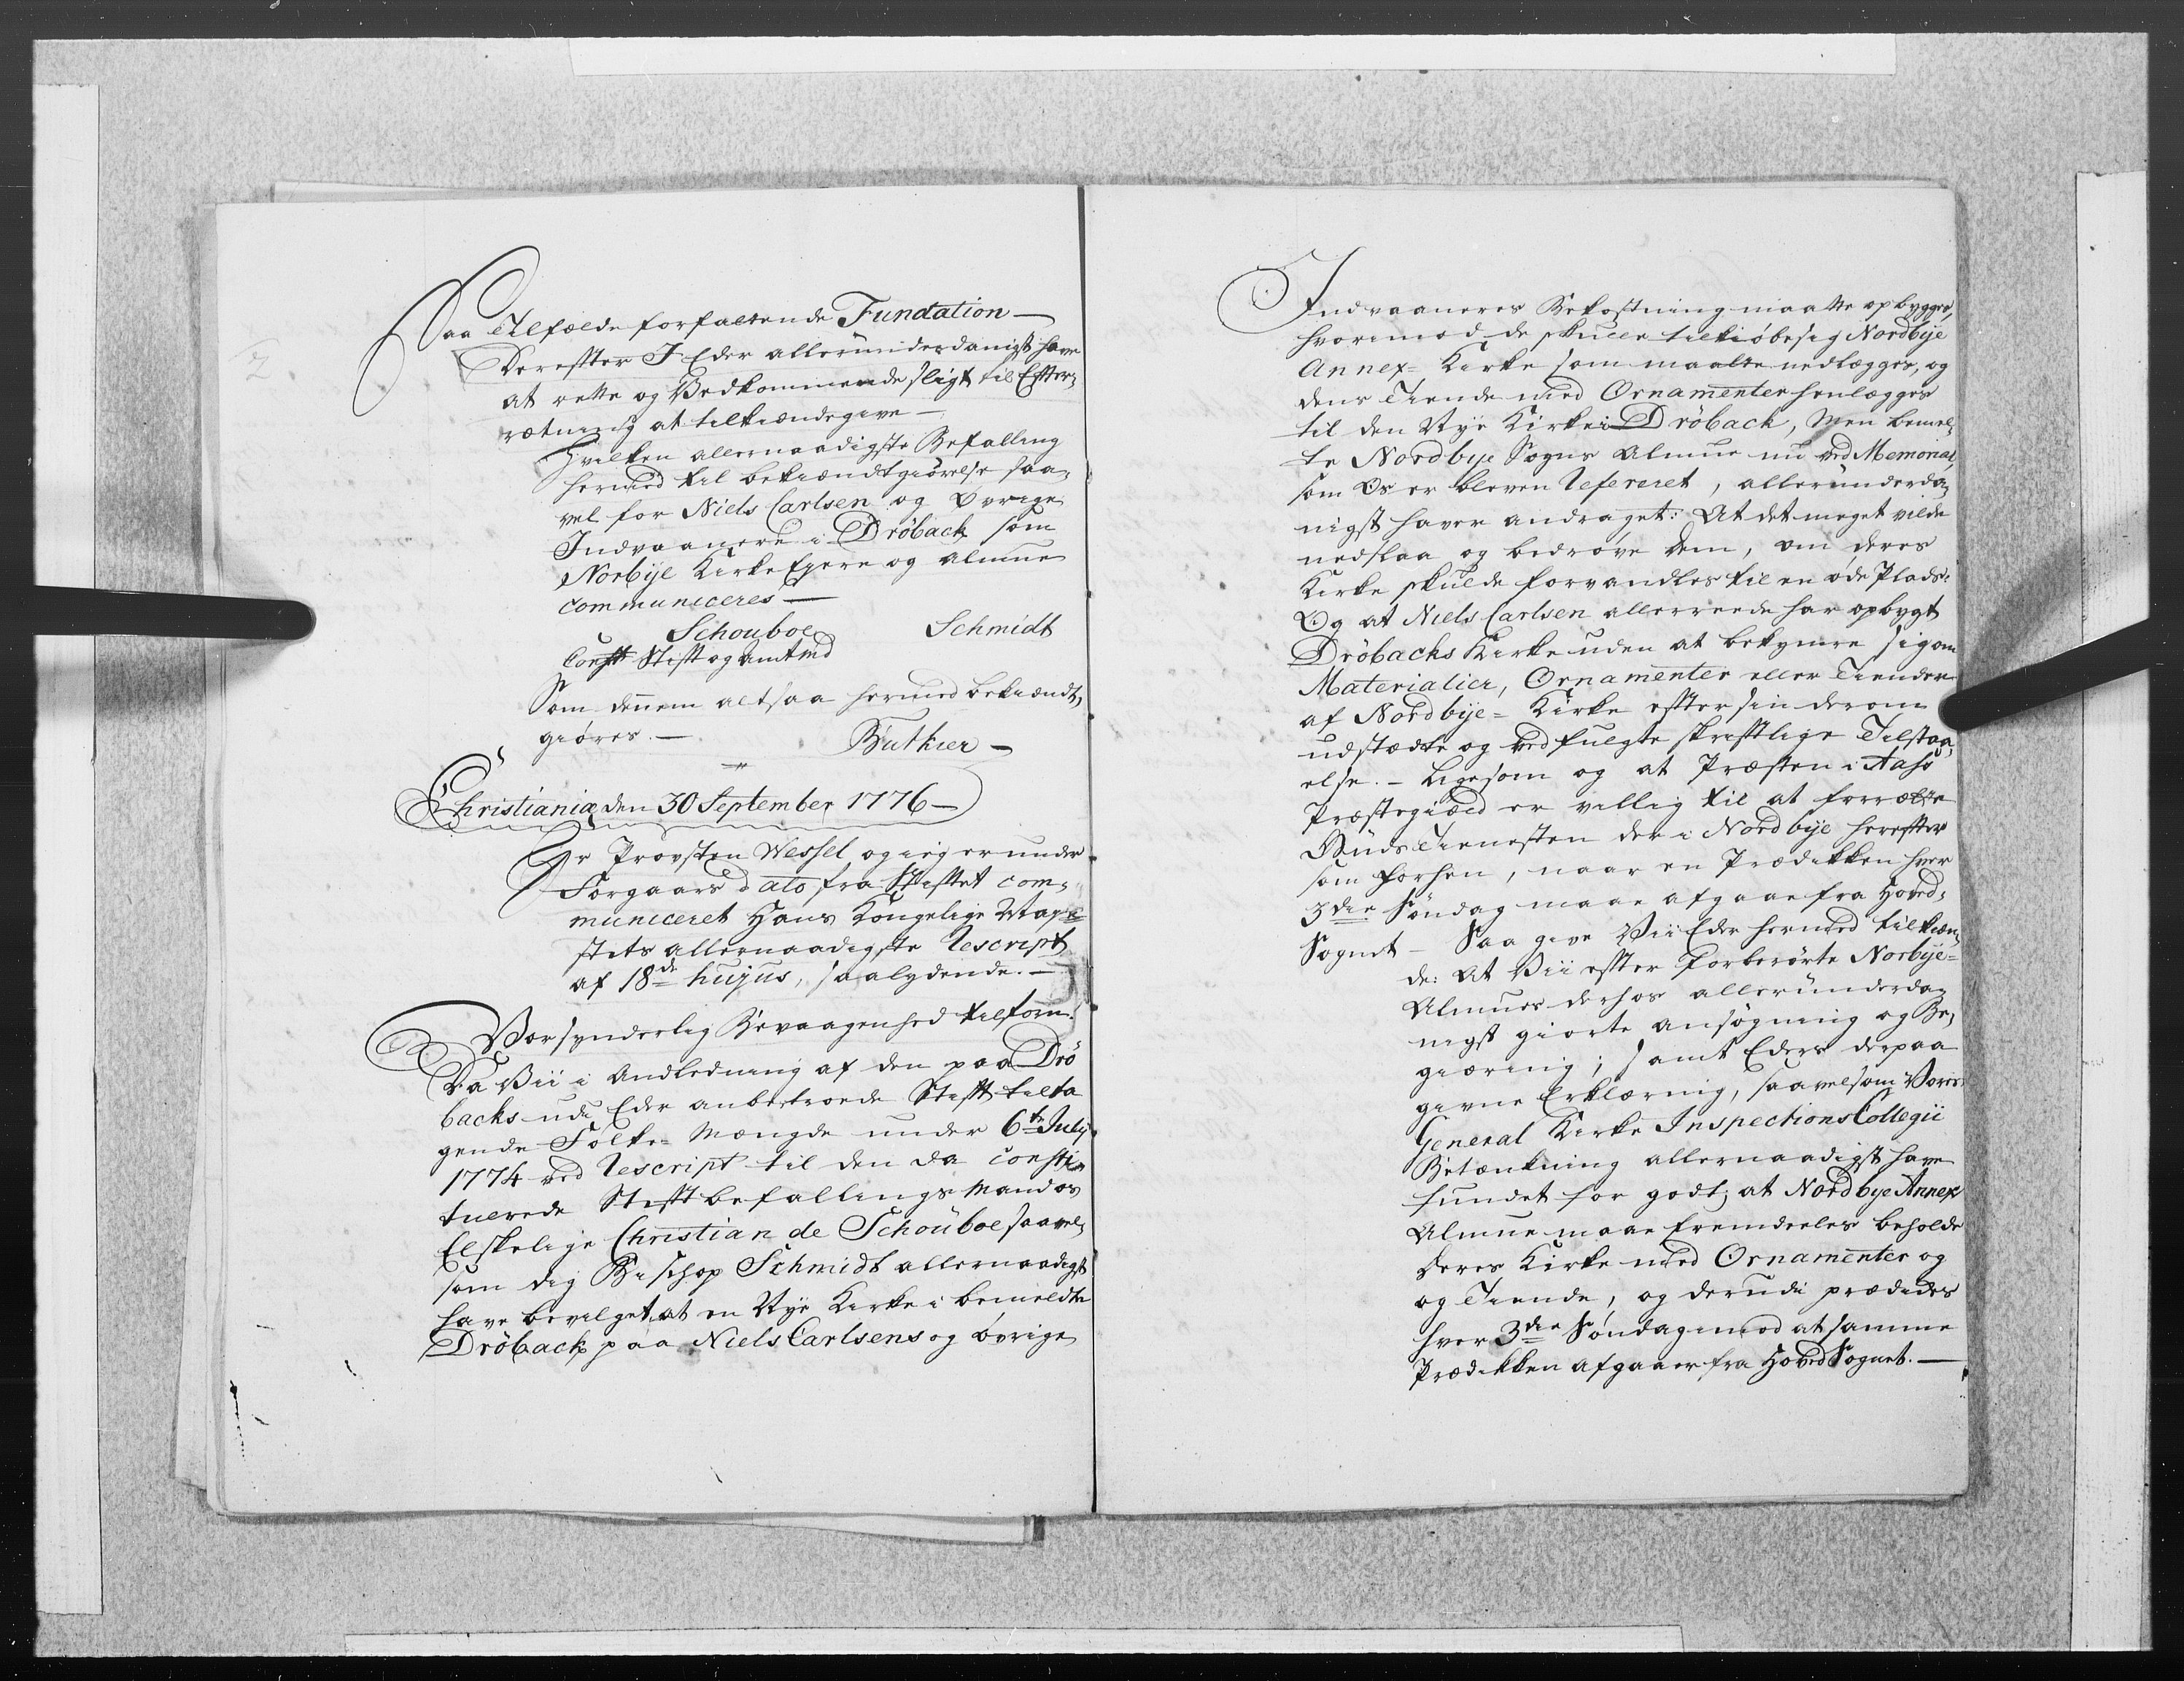 Saa Tilfælde forfattende Fundation —
Derefter I Eder allerunderdanigst have
at rette og Vedkommende sligt til Efter-
rætning at tilkiændegive —
Hvilken allernaadigste Befalling
hermed til bekiændtgiørelse saa-
vel for Niels Carlsen og Øvrige
Indvaanere i Dröback som
Norbÿe Kirke Eÿere og Almue
communiceres —
Schouboe Schmidt
Const Stift og Amtmd
Som dennem altsaa hermed bekiændt-
giøres. —
Buthier —
Christiania den 30 September 1776 —
Hr Provsten Wessel og ieg er under
Forgaars dato fra Stiftet com-
municeret Hans Kongelige Maÿe-
stets allernaadigste Rescript
af 18de hujus, saalydende. —
Vor synderlig Bevaagenhed tilforn!
Da Vii i Andledning af den paa Drö
backs udi Eder anbetroede Stift tilta
gende Folke-Mængde under 6te July
1774 ved Rescript til den da consti-
tuerede Stiftbefallings Mand os
Elskelige Christian de Schouboe saavel-
som dig Bischop Schmidt allernaadigst
have bevilget at en Nye Kirke i bemeldte
Dröback paa Niels Carlsens og övrige
Indvaaneres Bekostning maatte opbygges,
hvorimod de skulle tilkiøbe sig Nordbÿe
Annex-Kirke som maatte nedlægges, og
dens Tiende med Ornamenter henlægges
til den Nye Kirke i Dröback, Men bemel-
te Nordbye Sogns Almue nu ved Memorial,
som Os er bleven Refereret, allerunderda-
nigst haver andraget: At det meget vilde
nedslaa og bedrøve dem, om deres
Kirke skulde forvandles til en øde Plads:
Og at Niels Carlsen allerreede har opbygt
Dröbachs Kirke uden at bekymre sig om
Materialier, Ornamenter eller Tiender
af Nordbÿe-Kirke efter sin derom
udstædte og vedfulgte skriftlige Tilstaa-
else. — Ligesom og at Præsten i Aahs
Præstegield er villig til at forrætte
Guds Tienesten der i Nordbÿe herefter
som forhen, naar en Prædikken hver
3die Söndag maae afgaae fra Hoved-
Sognet — Saa give Vii Eder hermed tilkien-
de: At Vii efter forberörte Norbÿe-
Almues derhos allerunderda-
nigst giorte ansøgning og Be-
giæring; samt Eders derpaa
givne Erklærnig, saavelsom Vores
General Kirke Inspections Collegii
Betænkning allernaadigst have
fundet for godt; at Nordbye Annex
Almue maae fremdeeles beholde
deres Kirke med Ornamenter og
og Tiende, og derudi prædikes
hver 3die Söndag imod at samme
Prædikken afgaaer fra Hoved Sognet. —